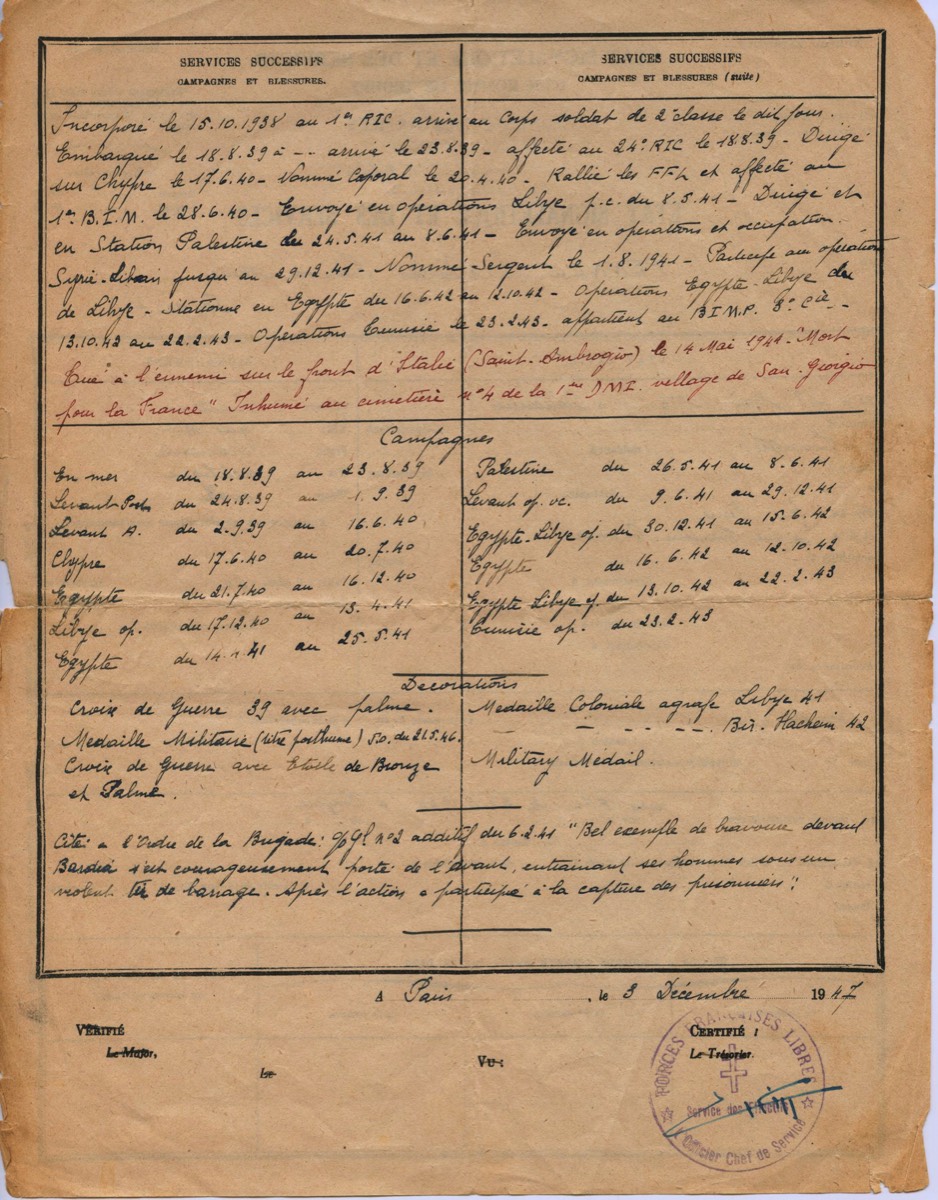 SERVICES SUCCESSIFS
CAMPAGNES ET BLESSURES.
SERVICES SUCCESSIFS
CAMPAGNES ET BLESSURES (suite)
Incorporé le 15.10.1938 au 1er RIC. arrivé au Corps soldat de 2e classe le dit jour.
Embarqué le 18.8.39 à -- arrivé le 23.8.39 - affecté au 24e RIC le 18.8.39 - Dirigé
sur Chypre le 17.6.40 - Nommé Caporal le 20.4.40 - Rallié les FFL et affecté au
1er B.I.M. le 28.6.40 - Envoyé en opérations Libye p.c. du 8.5.41 - Dirigé et
en Station Palestine du 24.5.41 au 8.6.41 - Envoyé en opérations et occupation.
Syrie-Liban jusqu'au 29.12.41 - Nommé Sergent le 1.8.1941 - Participe aux opérations
de Libye - Stationne en Egypte du 16.6.42 au 12.10.42 - Opérations Egypte-Libye du
13.10.42 au 22.2.43 - Opérations Tunisie le 23.2.43 - appartient au BIMP. 8e Cie --
Tué" à l'ennemi sur le front d'Italie (Saint-Ambrogio) le 14 Mai 1944 - "Mort
pour la France" Inhumé au cimetière n°4 de la 1ère DMI. village de San-Giorgio
Campagnes
En mer du 18.8.39 au 23.8.39
Levant du 24.8.39 au 1.9.39
Levant A. du 2.9.39 au 16.6.40
Chypre du 17.6.40 au 20.7.40
Egypte du 21.7.40 au 16.12.40
Libye op. du 17.12.40 au 13.4.41
Egypte du 14.4.41 au 25.5.41
Palestine du 26.5.41 au 8.6.41
Levant op. vc. du 9.6.41 au 29.12.41
Egypte-Libye op. du 30.12.41 au 15.6.42
Egypte du 16.6.42 au 12.10.42
Egypte Libye op. du 13.10.42 au 22.2.43
Tunisie op. du 23.2.43
Décorations
Croix de Guerre 39 avec palme.
Medaille Militaire (titre posthume) J.O. du 21.5.46.
Croix de Guerre avec Etoile de Bronze
et Palme.
Medaille Coloniale agrafe Libye 41
- - -- --. Bir-Hacheim 42
Military Médail.
Cité à l'Ordre de la Brigade: O/Gl n°2 additif du 6.2.41 "Bel exemple de bravoure devant
Bardia s'est courageusement porté de l'avant, entrainant ses hommes sous un
violent tir de barrage. Après l'action a participé à la capture des prisonniers".
A Paris, le 3 Décembre 1947
VÉRIFIÉ
Le Major,
Le
VU:
CERTIFIÉ :
Le Trésorier.
FORCES FRANÇAISES LIBRES
Service des Effectifs
L'Officier Chef de Service